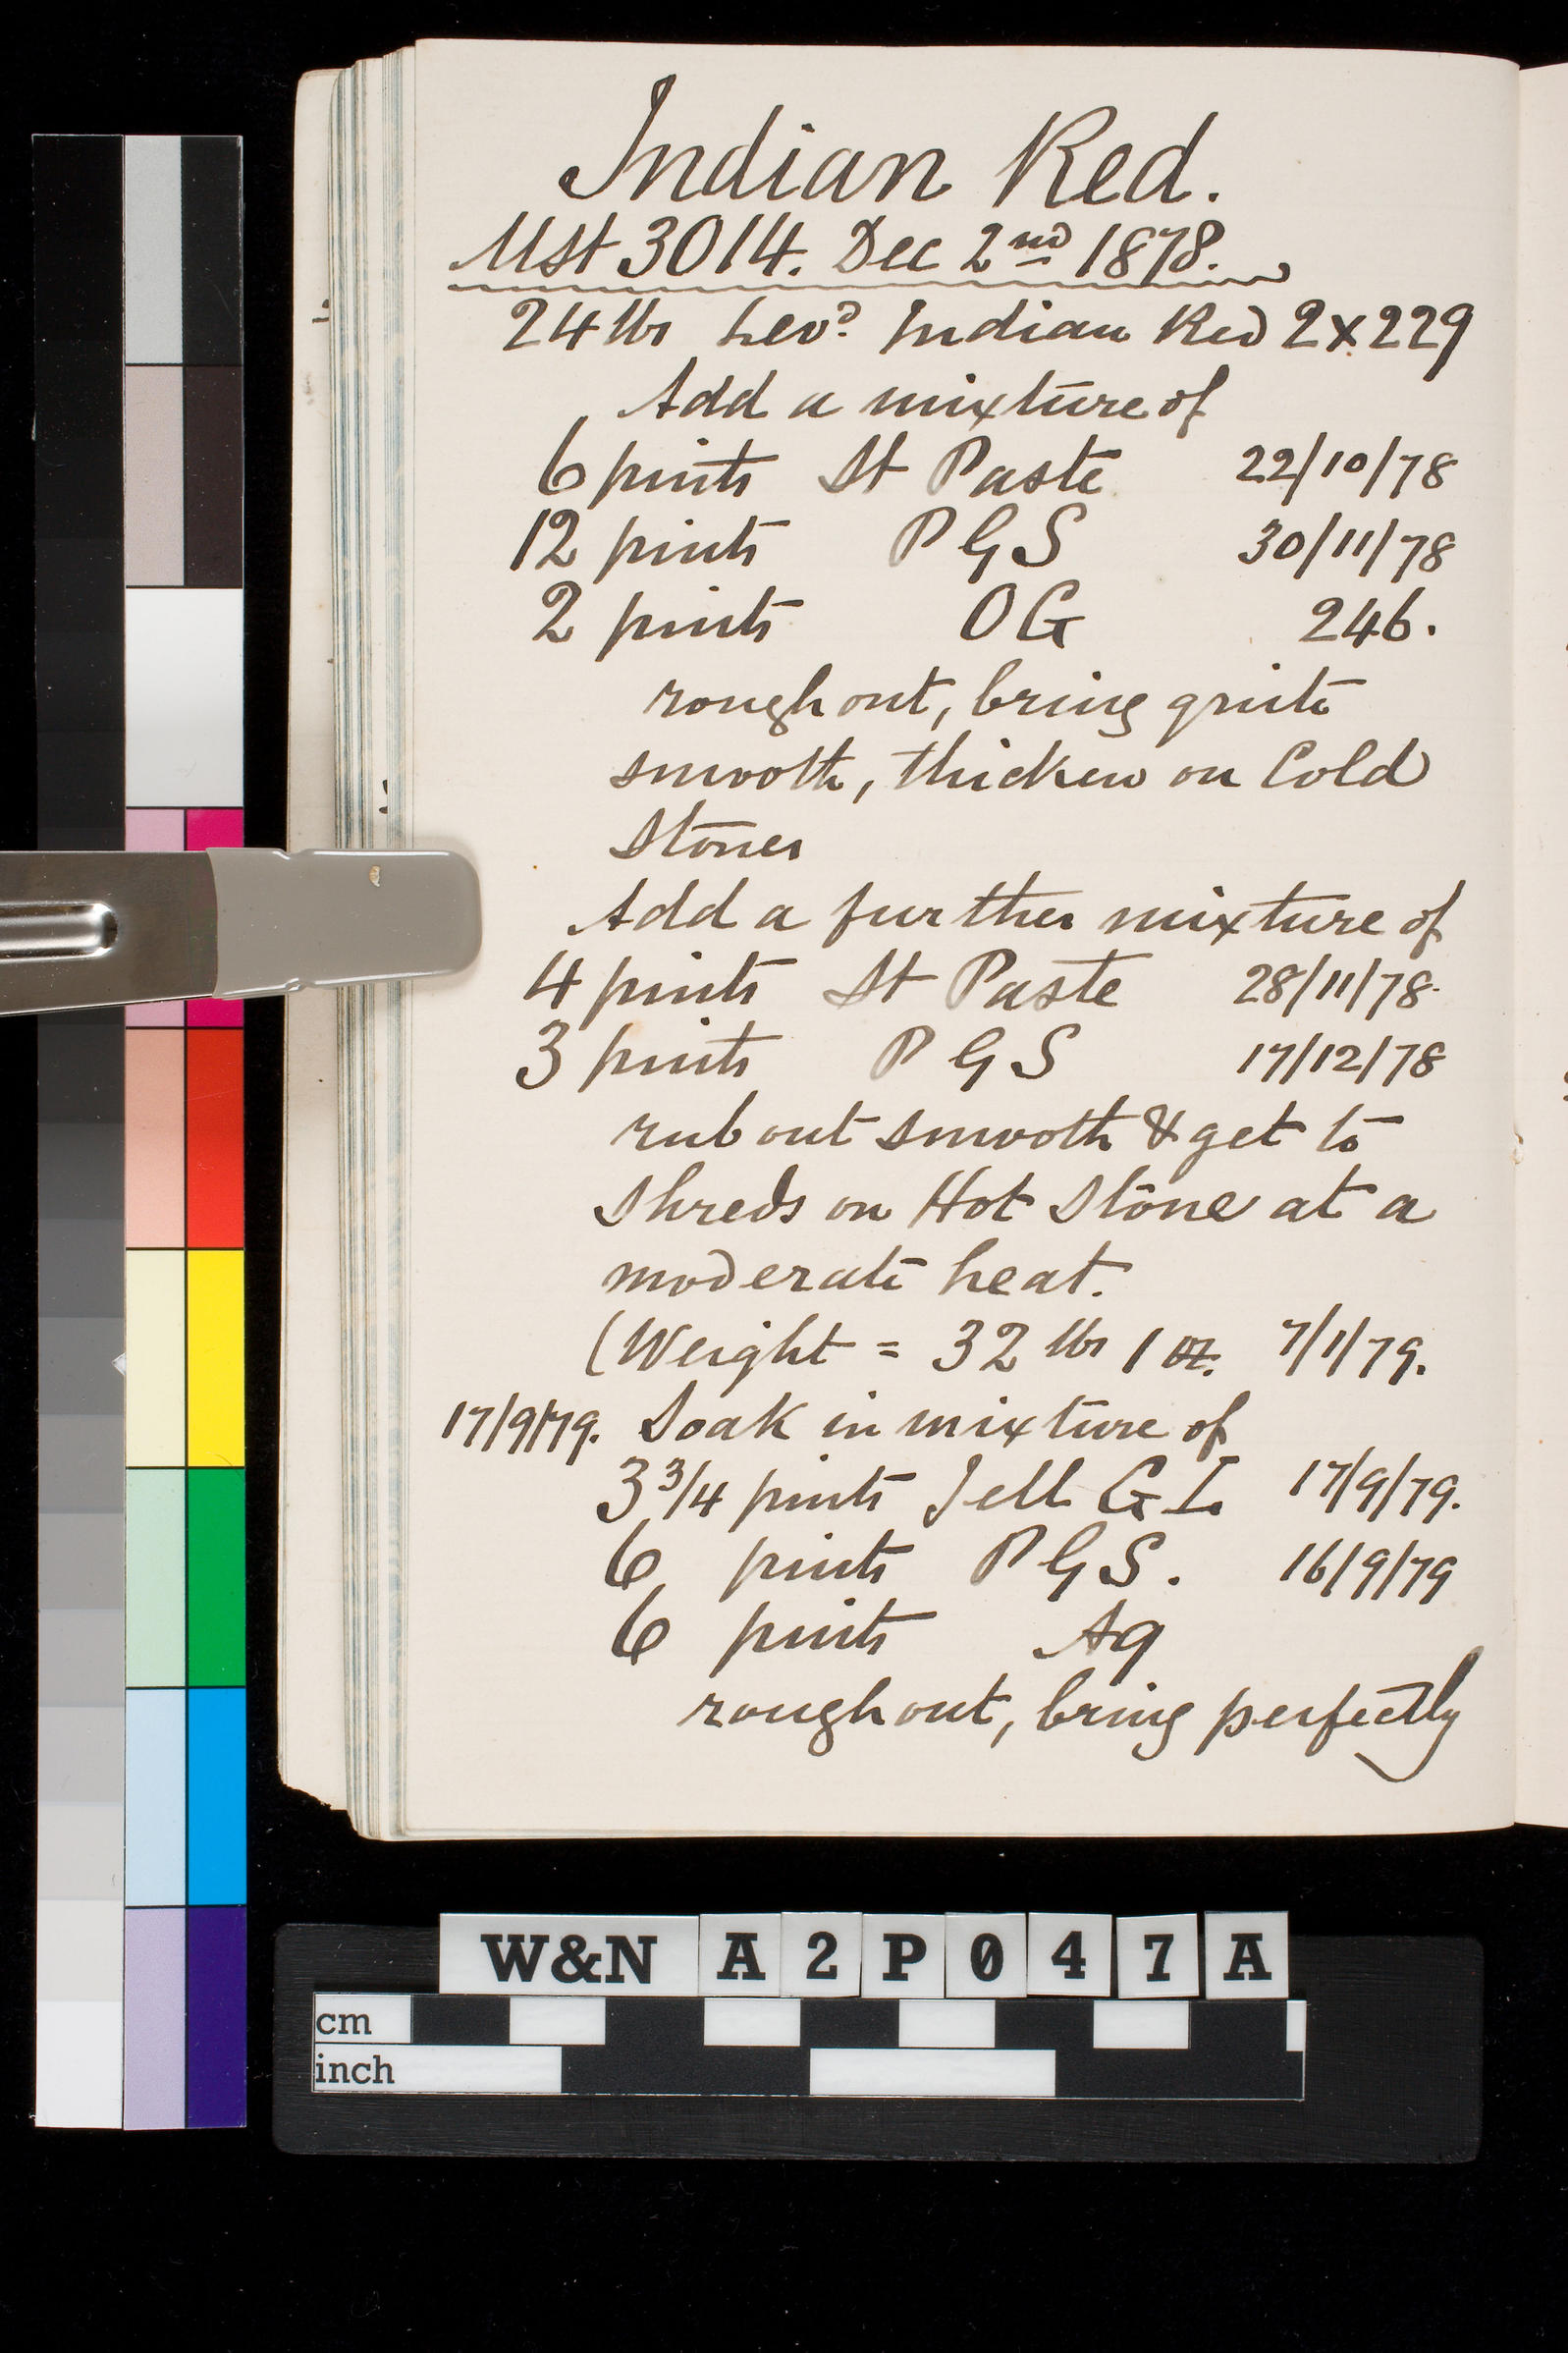 Indian Red.
Mst 3014. Dec 2nd 1878.
24 lbs Levd Indian Red 2x229
Add a mixture of
6 pints St Paste 22/10/78
12 pints P G S 30/11/78
2 pints O G 246.
rough out, bring quite
smooth, thicken on Cold
Stones
Add a further mixture of
4 pints St Paste 28/11/78.
3 pints P G S 17/12/78
rub out smooth & get to
Shreds on Hot Stone at a
moderate heat.
(Weight = 32 lbs 1 oz. 7/1/79.
17/9/79. Soak in mixture of
3 3/4 pints Jell G I. 17/9/79.
6 pints P G S. 16/9/79
6 pints Aq
rough out, bring perfectly
W&N A2P047A
cm
inch